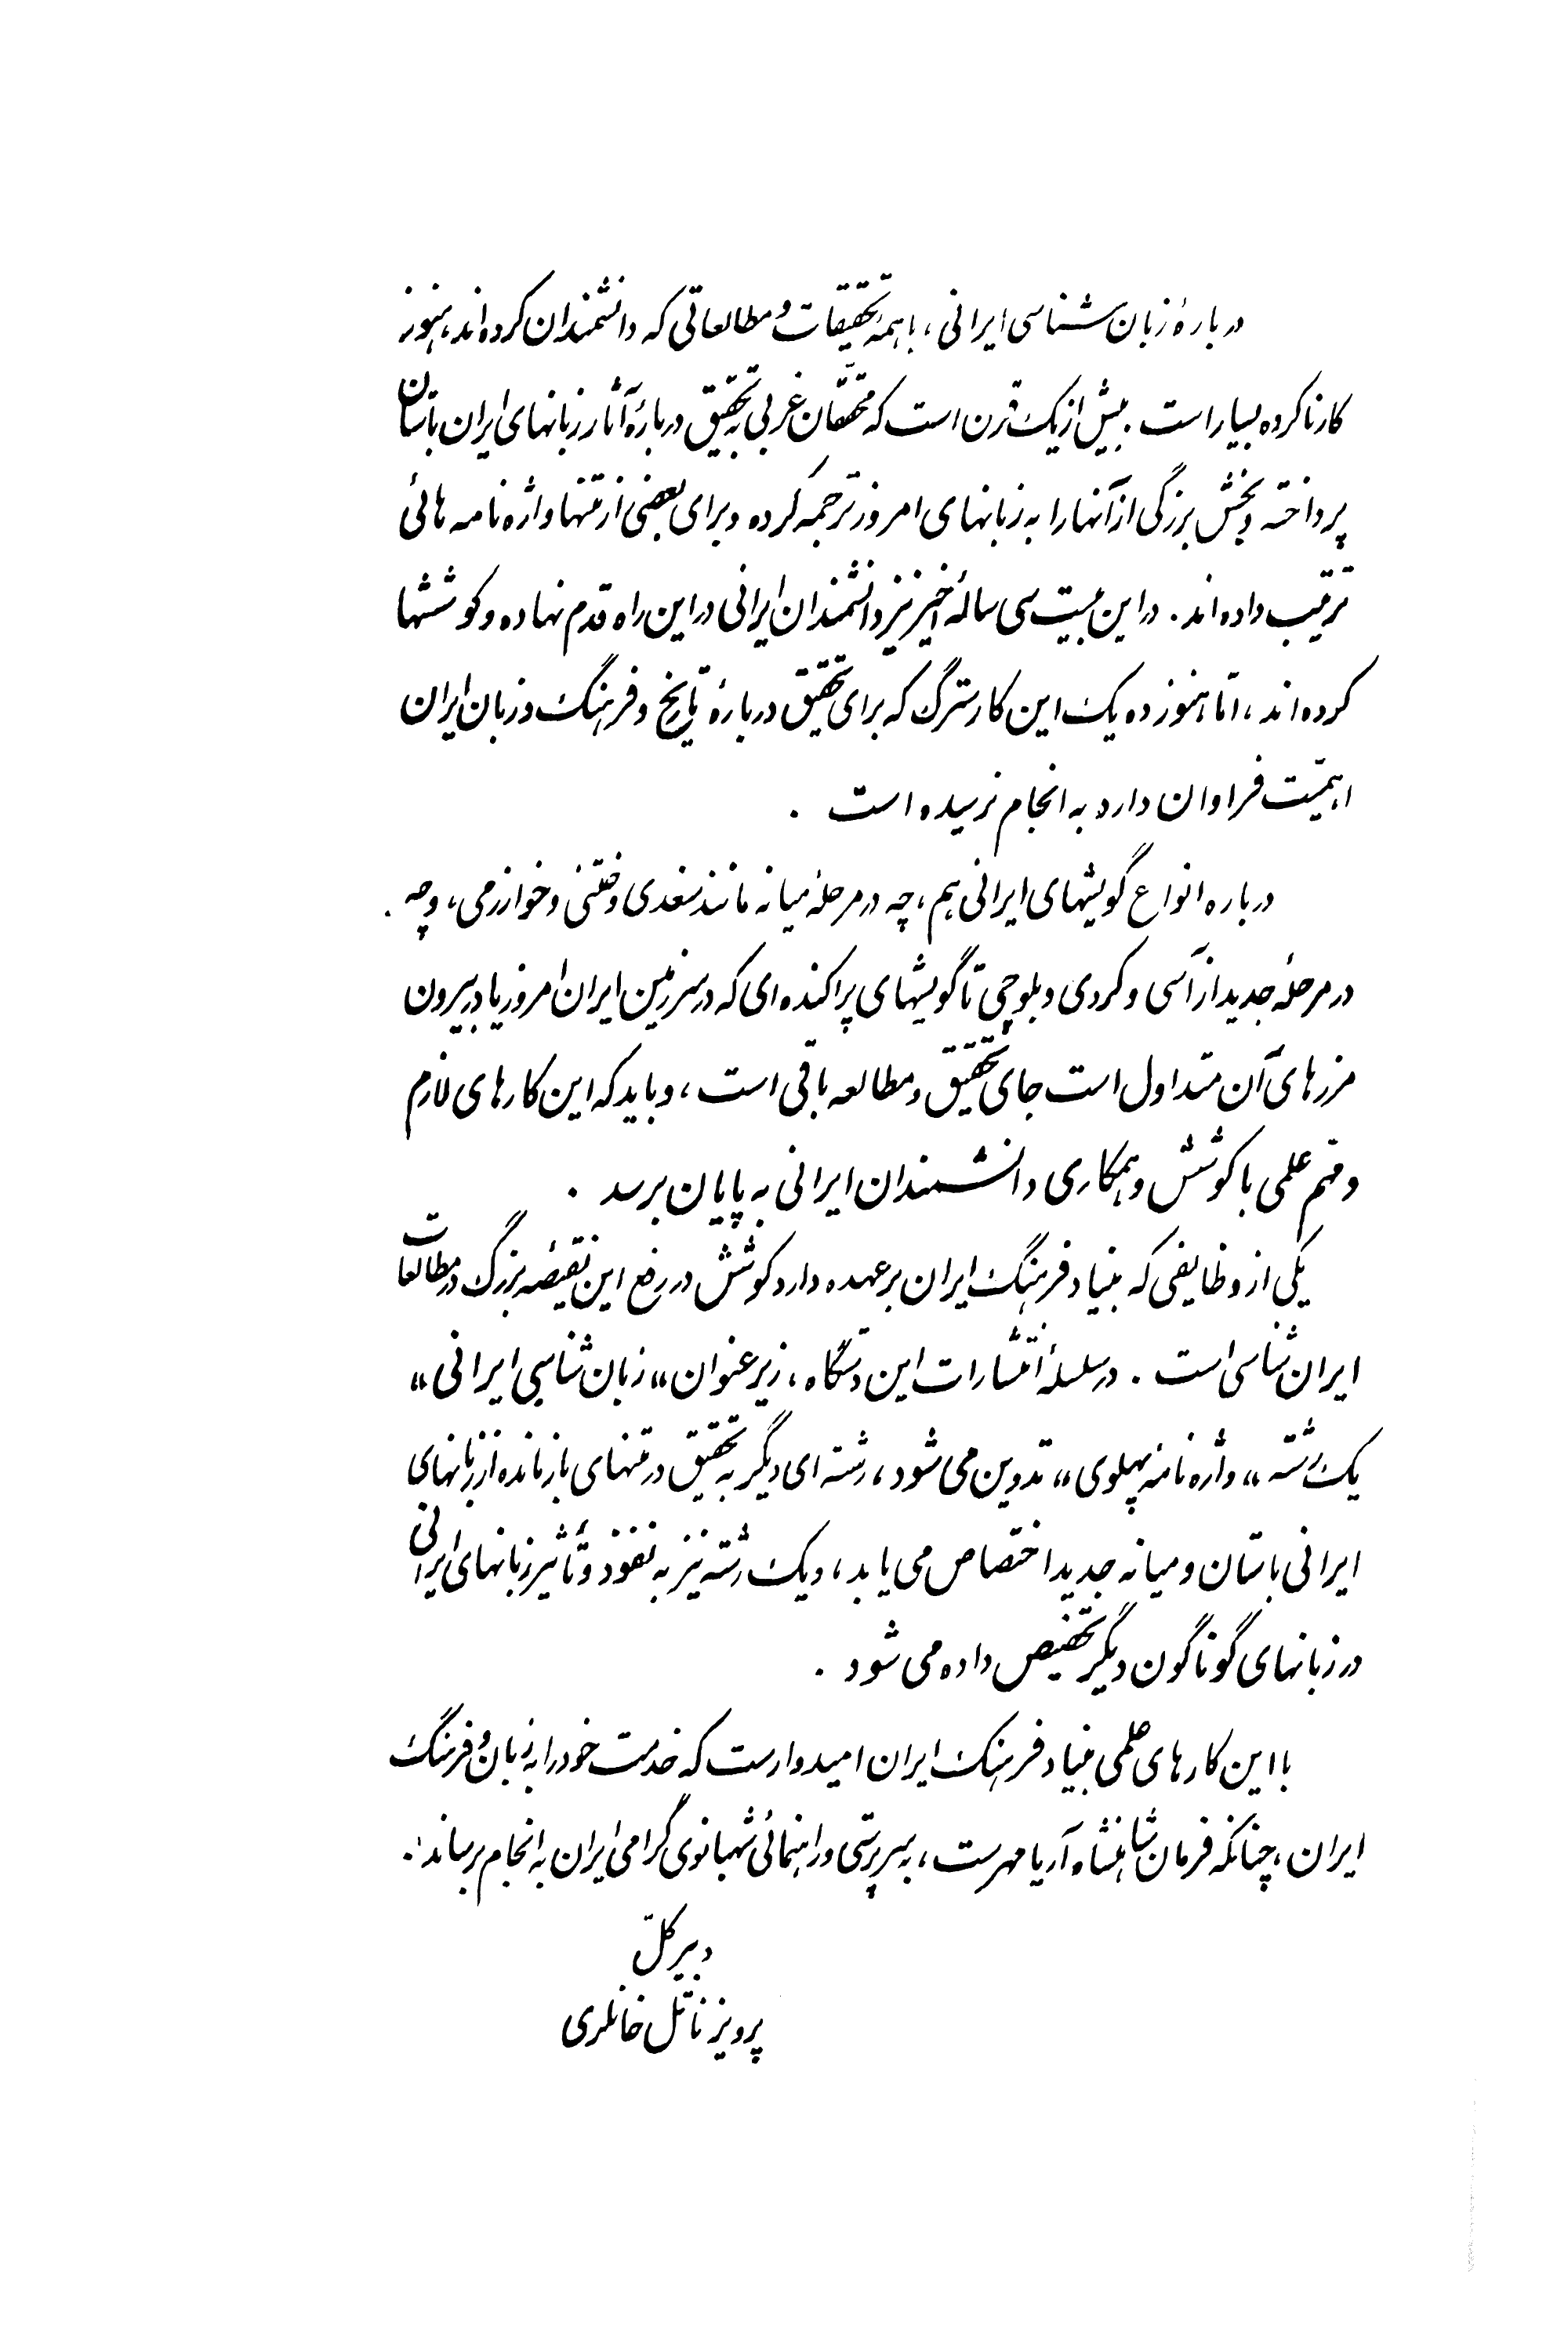 دربارهٔ زبان شناسی ایرانی، با همهٔ تحقیقات و مطالعاتی که دانشمندان کرده‌اند، هنوز
کار ناکرده بسیار است. بیش از یک قرن است که محقّقان غربی به تحقیق دربارهٔ آثار زبانهای ایران باستان
پرداخته و بخش بزرگی از آنها را به زبانهای امروز ترجمه کرده و برای بعضی از متنها واژه نامه هائی
ترتیب داده‌اند. در این بیست سی سالهٔ اخیر نیز دانشمندان ایرانی در این راه قدم نهاده و کوششها
کرده‌اند، امّا هنوز ده یک این کار سترگ که برای تحقیق دربارهٔ تاریخ و فرهنگ و زبان ایران
اهمیّت فراوان دارد به انجام نرسیده است.
درباره انواع گویشهای ایرانی هم، چه در مرحلهٔ میانه مانند سغدی و ختنی و خوارزمی، و چه
در مرحلهٔ جدید از آسی و کردی و بلوچی تا گویشهای پراکنده‌ای که در سرزمین ایران امروز یا در بیرون
مرزهای آن متداول است جای تحقیق و مطالعه باقی است، و باید که این کارهای لازم
و مهم علمی با کوشش و همکاری دانشمندان ایرانی به پایان برسد.
یکی از وظایفی که بنیاد فرهنگ ایران بر عهده دارد کوشش در رفع این نقیصهٔ بزرگ در مطالعات
ایران شناسی است. در سلسلهٔ انتشارات این دستگاه، زیر عنوان «زبان شناسی ایرانی»
یک رشته «واژه نامهٔ پهلوی» تدوین می شود، رشته‌ای دیگر به تحقیق در متنهای بازمانده از زبانهای
ایرانی باستان و میانه جدید اختصاص می یابد، و یک رشته نیز به نفوذ و تأثیر زبانهای ایرانی
در زبانهای گوناگون دیگر تخصیص داده می شود.
با این کارهای علمی بنیاد فرهنگ ایران امیدوارست که خدمت خود را به زبان و فرهنگ
ایران، چنانکه فرمان شاهنشاه آریامهرست، به سرپرستی و راهنمائی شهبانوی گرامی ایران به انجام برساند.
دبیر کلّ
پرویز ناتل خانلری